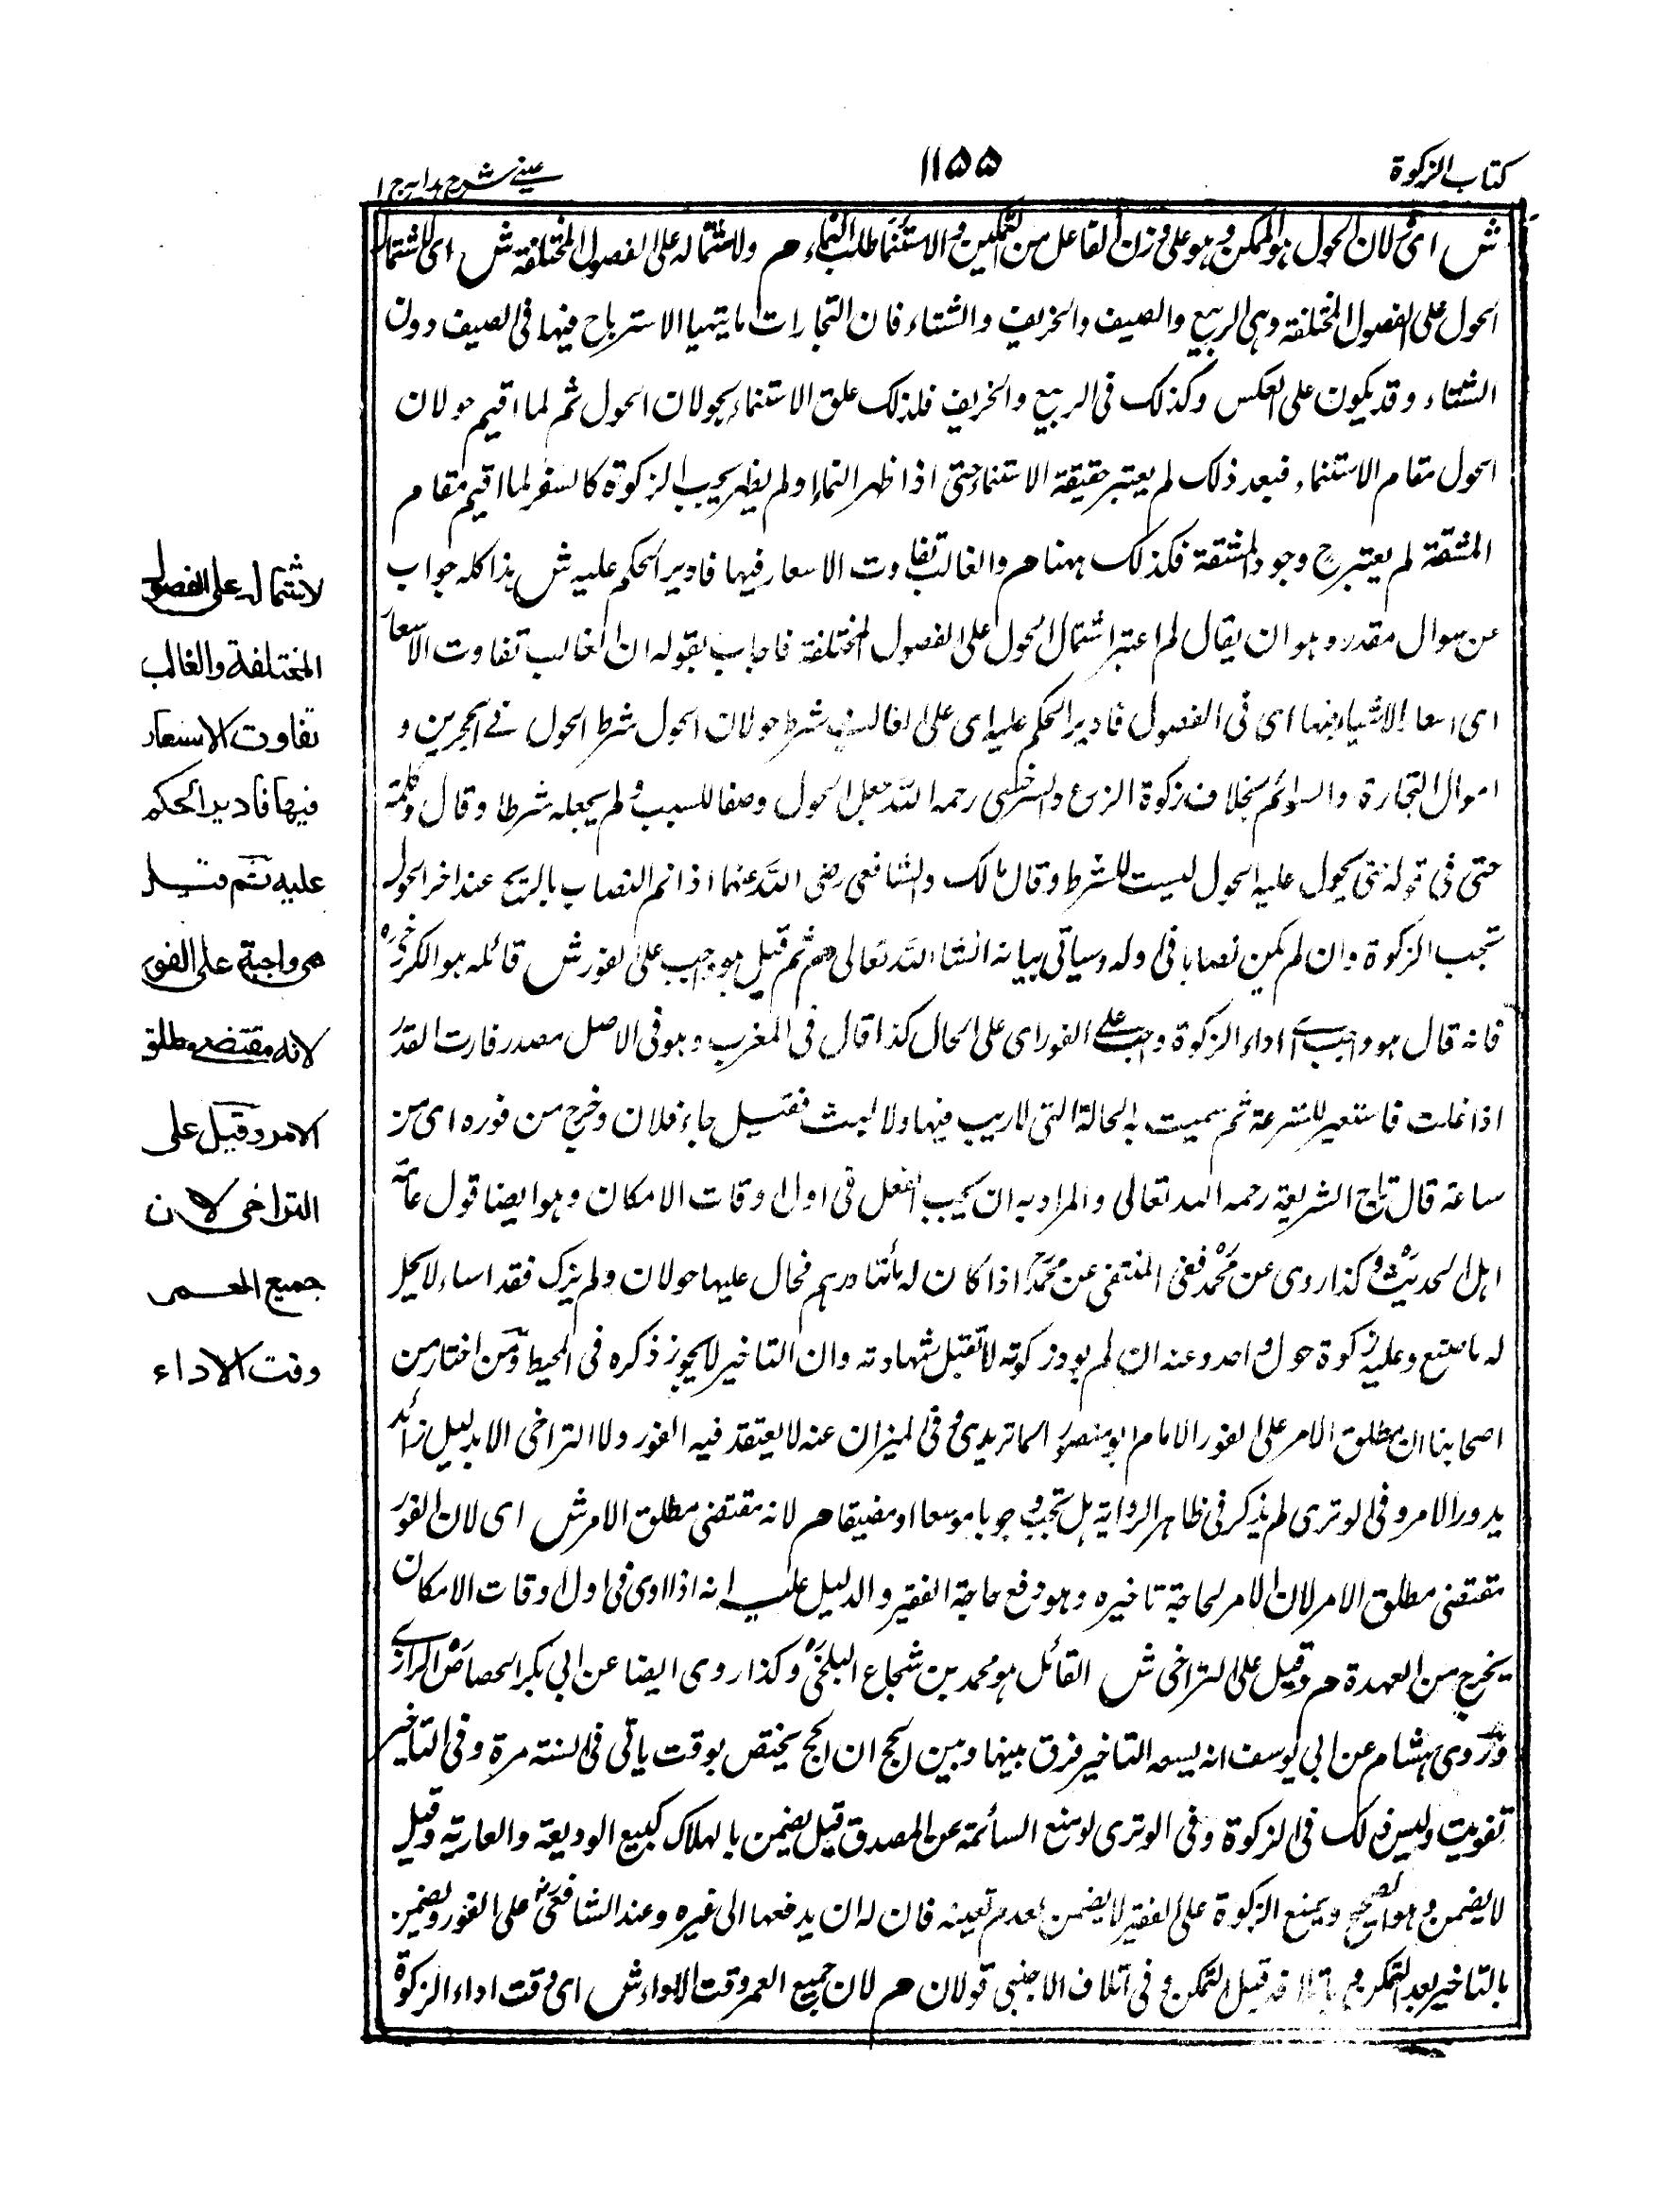 كتاب الزكوة
١١٥٥
عينى شرح هدايه ج ١
ش اى ولان الحول هو الممكن وهو على وزن الفاعل من التمكين والاستنماء طلب النماء م ولاشتماله على الفصول المختلفة ش اى لاشتمال
الحول على الفصول المختلفة وهى الربيع والصيف والخريف والشتاء فان التجارات ما يتهيا الاسترباح فيها فى الصيف دون
الشتاء وقد يكون على العكس وكذلك فى الربيع والخريف فلذلك علق الاستنماء بحولان الحول ثم لما اقيم حولان
الحول مقام الاستنماء فبعد ذلك لم يعتبر حقيقة الاستنماء حتى اذا ظهر النماء او لم يظهر يجب الزكوة كالسفر لما اقيم مقام
المشقة لم يعتبر ح وجود المشقة فكذلك ههنا م والغالب تفاوت الاسعار فيها فادير الحكم عليه ش هذا كله جواب
عن سوال مقدر وهو ان يقال لم اعتبر اشتمال الحول على الفصول المختلفة فاجاب بقوله ان الغالب تفاوت الاسعار
اى اسعار الاشياء فيها اى فى الفصول فادير الحكم عليه اى على الغالب شرط حولان الحول شرط الحول فى الحجرين و
اموال التجارة والسوائم بخلاف زكوة الزرع والسرخسى رحمه الله جعل الحول وصفا للسبب ولم يجعله شرطا وقال وكلمة
حتى فى قوله حتى يحول عليه الحول ليست للشرط وقال مالك والشافعى رضى الله عنهما اذا تم النصاب بالربح عند اخر الحول
تجب الزكوة وان لم يكن نصابا فى اوله وسياتى بيانه انشاء الله تعالى م ثم قيل هو واجب على الفور ش قائله هو الكرخى
فانه قال هو واجب اى اداء الزكوة واجب على الفور اى على الحال كذا قال فى المغرب وهو فى الاصل مصدر فارت القدر
اذا غلت فاستعير للسرعة ثم سميت به الحالة التى لا ريب فيها ولا لبث فقيل جاء فلان وخرج من فوره اى من
ساعة قال تاج الشريعة رحمه الله تعالى والمراد به ان يجب الفعل فى اول اوقات الامكان وهو ايضا قول عامة
اهل الحديث وكذا روى عن محمد ففى المنتقى عن محمد اذا كان له مأتا درهم فحال عليها حولان ولم يزك فقد اساء لا يحل
له ما صنع وعليه زكوة حول واحد وعنه ان لم يود زكوته لا تقبل شهادته وان التاخير لا يجوز ذكره فى المحيط ومن اختار من
اصحابنا ان مطلق الامر على الفور الامام ابو منصور الماتريدى وفى الميزان عنه لا يعتقد فيه الفور ولا التراخى الا بدليل زائد
يدور الامر وفى الوترى لم يذكر فى ظاهر الرواية هل تجب وجوبا موسعا او مضيقا م لانه مقتضى مطلق الامر ش اى لان الفور
مقتضى مطلق الامر لان الامر لحاجة تاخيره وهو دفع حاجة الفقير والدليل عليه انه اذا ادى فى اول اوقات الامكان
يخرج من العهدة م وقيل على التراخى ش القائل هو محمد بن شجاع البلخى وكذا روى ايضا عن ابى بكر الجصاص الرازى
وروى هشام عن ابى يوسف انه يسعه التاخير فرق بينها وبين الحج ان الحج يختص بوقت ياتى فى السنة مرة وفى التاخير
تفويت وليس ذلك فى الزكوة وفى الوترى لو منع السائمة عن المصدق قيل يضمن بالهلاك كبيع الوديعة والعارية وقيل
لا يضمن وهو الصحيح ويمنع الزكوة على الفقير لا يضمن لعدم تعينه فان له ان يدفعها الى غيره وعند الشافعى على الفور ويضمن
بالتاخير بعد التمكن و باتلافه قبل التمكن وفى اتلاف الاجنبى قولان م لان جميع العمر وقت الاداء ش اى وقت اداء الزكوة
لاشتماله على الفصول
المختلفة والغالب
تفاوت الاسعار
فيها فادير الحكم
عليه ثم قيل
هى واجبة على الفور
لانه مقتضى مطلق
الامر وقيل على
التراخى لان
جميع العمر
وقت الاداء